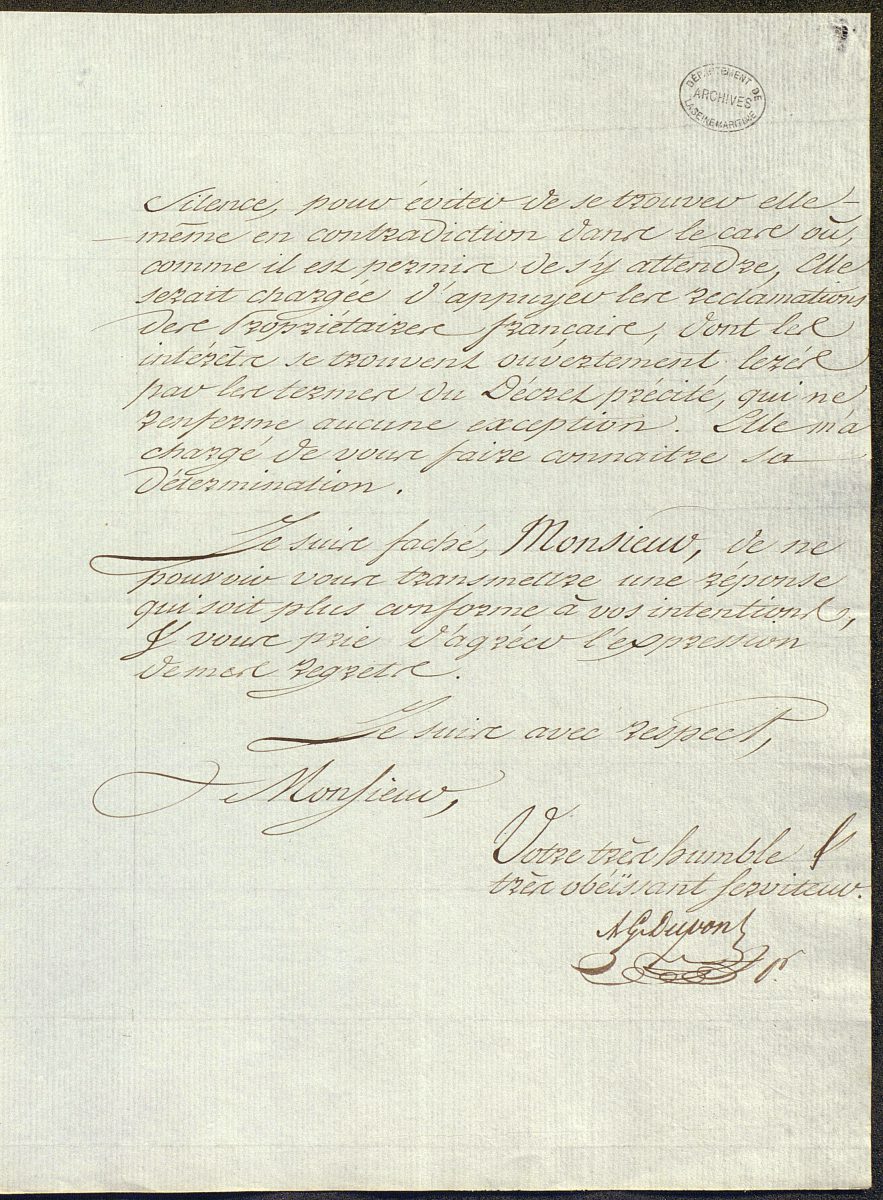 DÉPARTEMENT DE
ARCHIVES
LA SEINE MARITIME
Silence, pour éviter de se trouver elle-
même en contradiction dans le cas où,
comme il est permis de s'y attendre, Elle
serait chargée d'appuyer les réclamations
des Propriétaires français, dont les
intérêts se trouvent ouvertement lezés
par les termes du Décret précité, qui ne
renferme aucune exception. Elle m'a
chargé de vous faire connaitre sa
Détermination.
Je suis faché, Monsieur, de ne
pouvoir vous transmettre une réponse
qui soit plus conforme à vos intentions,
& vous prie d'agréer l'expression
de mes regrets.
Je suis avec respect,
Monsieur,
Votre très humble &
très obéïssant Serviteur.
A G Dupont